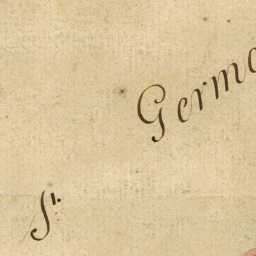 St. Germa